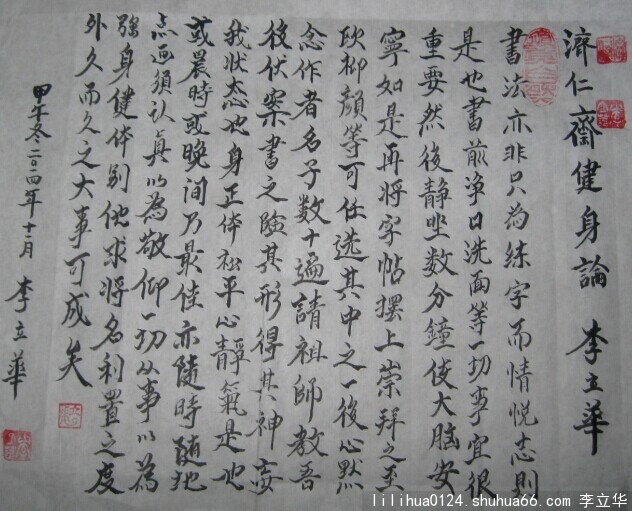 濟仁齋健身論 李立華
書法亦非只為練字而情悅志則
是也書前淨口洗面等一切事宜很
重要然後靜坐數分鐘使大脑安
寧如是再將字帖擺上崇拜之至
欧柳顏等可任选其中之一後心默
念作者名子數十遍請祖師教吾
後伏案書之險其形得其神妄
我状态也身正体松平心靜氣是也
或晨時或晚间乃最佳亦隨時随地
点画須认真以為敬仰一切从事以為
強身健体别他求將名利置之度
外久而久之大事可成矣
甲午冬二〇一四年十一月 李立華
lilihua0124.shuhua66.com 李立华